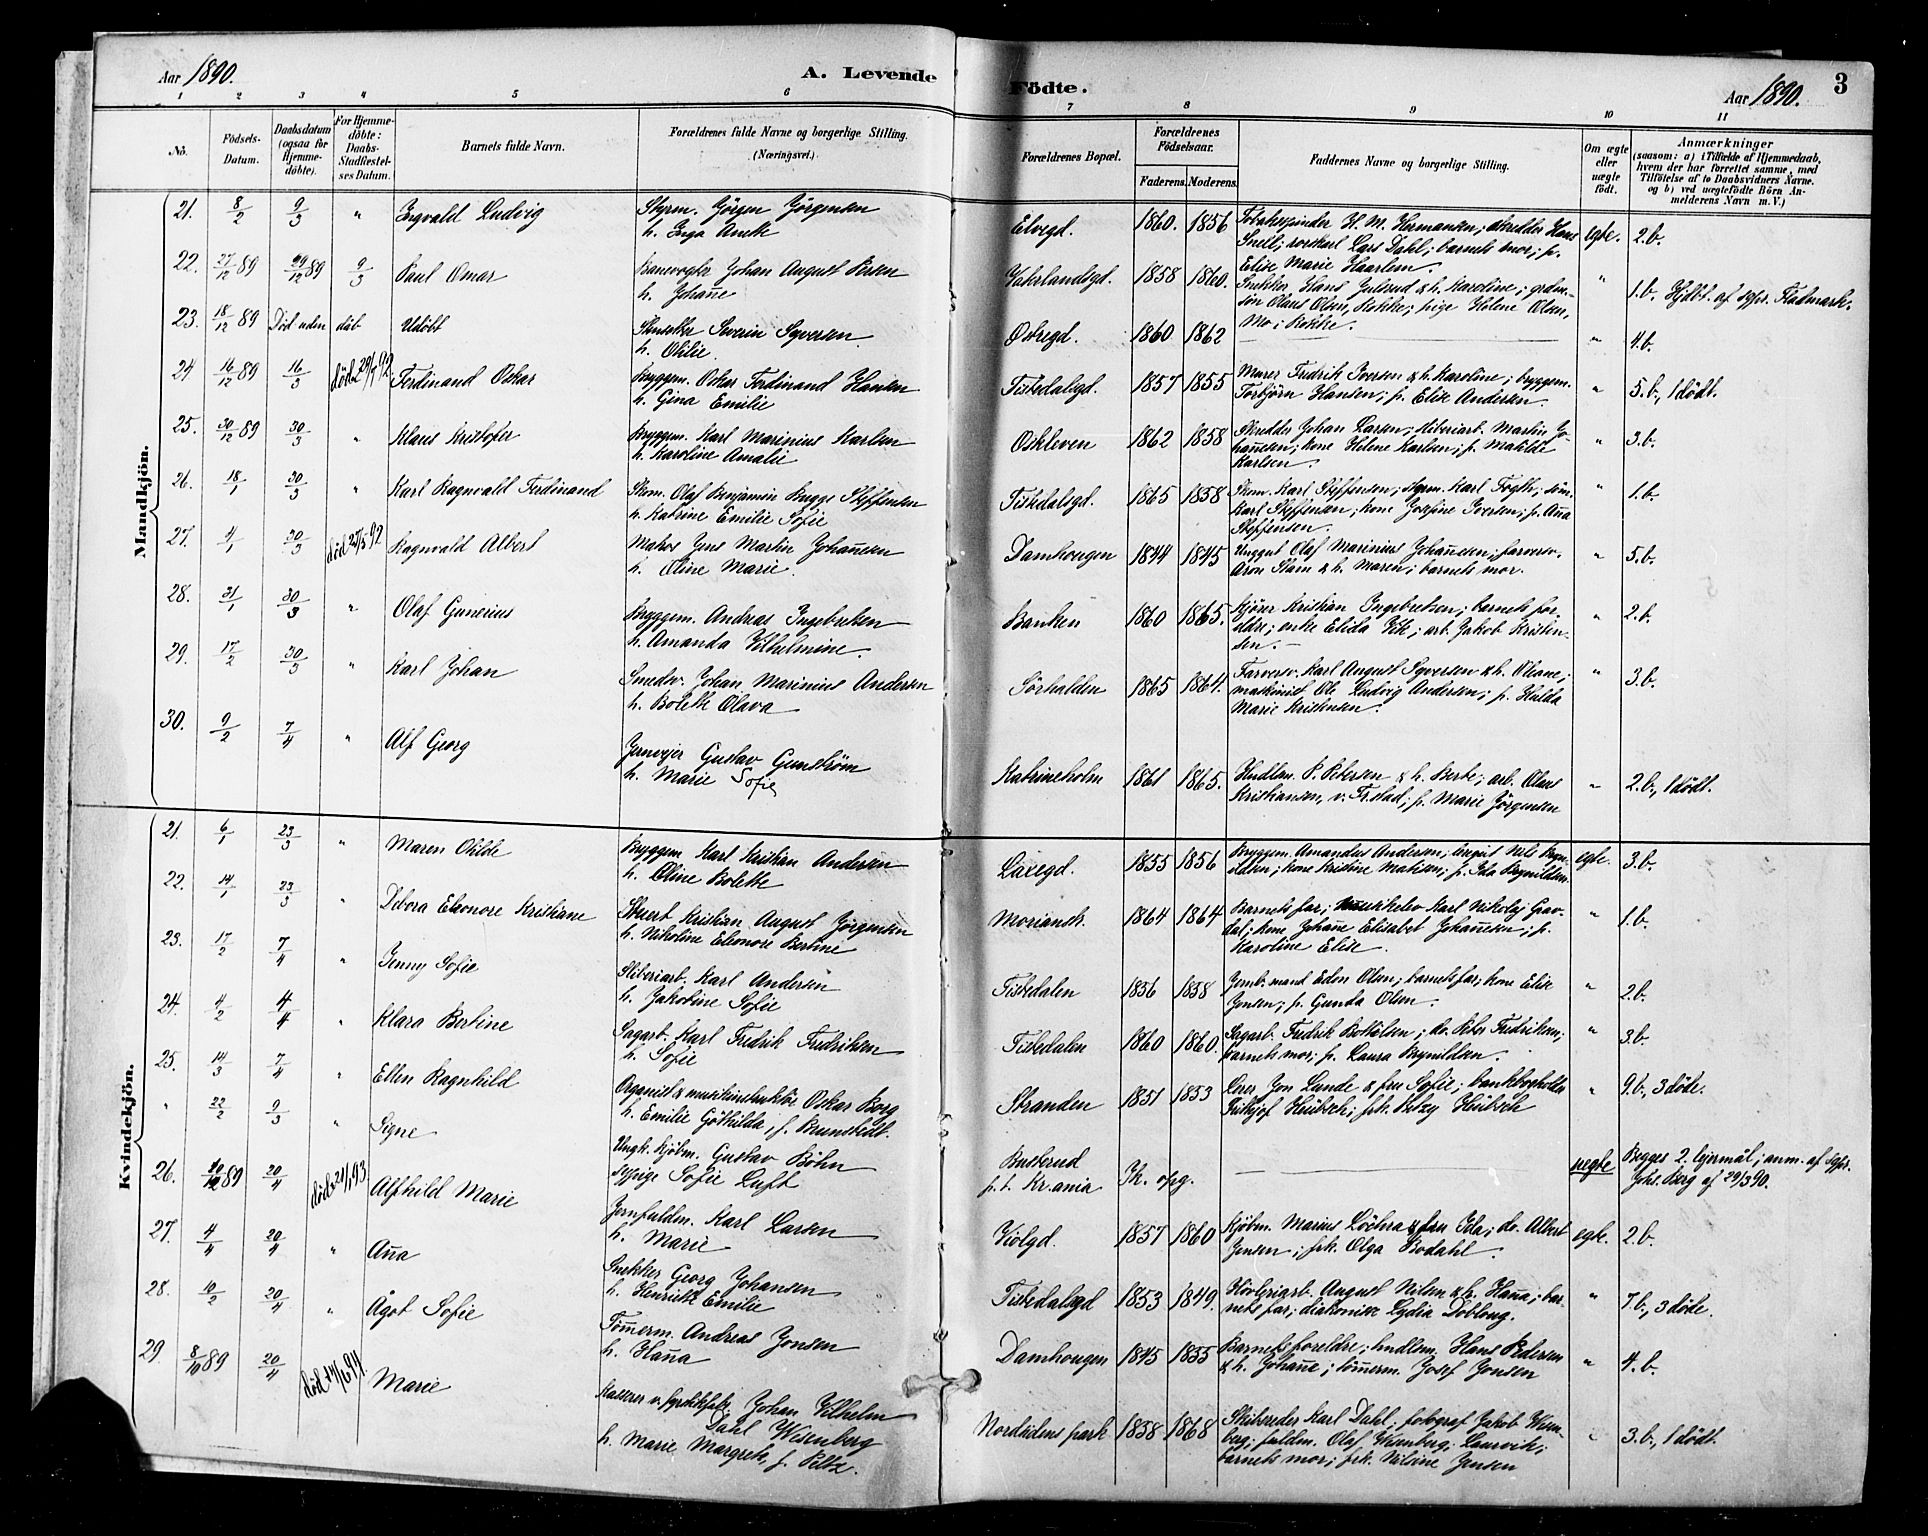 Aar 1890.
A. Levende
Födte.
Aar 1890.
3
1 2 3 4 5 6 7 8 9 10 11
No.
Födsels-Datum.
Daabsdatum (ogsaa för Hjemme-döbte).
For Hjemme-döbte: Daabs-Stadfæstel-ses Datum.
Barnets fulde Navn.
Forældrenes fulde Navne og borgerlige Stilling. (Næringsvei.)
Forældrenes Bopæl.
Forældrenes Födselsaar.
Faderens. Moderens.
Faddernes Navne og borgerlige Stilling.
Om ægte eller uægte födt.
Anmærkninger
(saasom: a) i Tilfælde af Hjemmedaab, hvem der har forrettet samme, med Tilföielse af to Daabsvidners Navne. og b) ved uægtefödte Börn Anmelderens Navn m. V.)
Mandkjön.
21. 8/2 9/3 " Ingvald Ludvig Styrm. Jörgen Jörgensen
h. Inga Anette
Elvegd. 1860. 1856 Tobakspinder H. M. Hermansen; skredder Hans
Snell; Lars Dahl; barnets mor; p.
Elise Marie Haarlem. egte. 2.b.
22. 27/12 89 29/12 89 9/3 Paul Omar Banevogter Johan August
h. Johañe
Vaterlandsgd. 1858 1860. Snekker Hans Julsrud & h. Karoline;
Olaus Olsen, Rokke; pige Helene Olsen,
Mo i Rokke. " 1.b. Hjdbt. af Fladmark.
23. 18/12 89 Död uden dåb Udöbt Severin Syversen
h. Otilie.
Östregd. 1860 1862 " 4.b.
24 16/12 89 16/3 död 29/7 92 Ferdinand Oskar Bryggem. Oskar Ferdinand Hansen
h. Gina Emilie
Tistedalsgd. 1857 1855 Murer Fredrik Iversen & h. Karoline; bryggem.
Torbjörn Hansen; p. Elise Andersen. " 5.b., 1 dödt.
25. 30/12 89 30/3 " Klaus Kristofer Bryggem. Karl Marinius Karlsen
h. Karoline Amalie
Oskleven 1862 1858 Skredder Johan Larsen; sliberiarb. Martin Jo-
hañesen; kone Helene Karlsen; p. Matilde
Karlsen. " 3.b.
26. 18/1 30/3 " Karl Ragnvald Ferdinand Skom. Olaf Benjamin Bugge Steffensen
h. Katrine Emilie Sofie
Tistedalsgd. 1865 1858 Skom. Karl Steffensen; Karl Fogth; söm.
Karl Steffensen; kone Josefine Iversen; p. Aña
Steffensen. " 1.b.
27. 4/1 30/3 död 25/5 92 Ragnvald Albert Matros Jens Martin Johañesen
h. Oline Marie.
Damhougen 1844 1845 Unggut Olaf Marinius Johañesen; farversv.
Aron Stam & h. Maren; barnets mor. " 5.b.
28. 31/1 30/3 " Olaf Gunerius Bryggem. Andreas Ingebretsen
h. Amanda Vilhelmine.
Banken 1860 1865. Kjörer Kristian Ingebretsen; barnets for-
eldre; enke Elida Vik; arb. Jakob Kristen-
sen. " 2.b.
29. 17/2 30/3 " Karl Johan Smedsv. Johan Marinius Andersen
h. Bolette Olava
Sörhalden 1865 1864. Farversv. Karl August Syversen & h. Oliane;
maskinist Ole Ludvig Andersen; p. Hulda
Marie Kristensen. " 3.b.
30. 9/2 7/4 " Alf Georg Gustav Gunström
h. Marie Sofie
Katrineholm 1861 1865. Hndlm. P. Petersen & h. Berte; arb. Olaus
Kristiansen, v. Fr.stad; p. Marie Jörgensen " 2.b., 1 dödt.
Kvindekjön.
21. 6/1 23/3 " Maren Otilde Bryggem Karl Kristian Andersen
h. Oline Bolette
Laxegd. 1855 1856 Bryggem. Amandus Andersen; Nils Bryn-
ildsen; kone Kristine Matisen; p. Ida Brynildsen. egte. 3.b.
22. 14/1 23/3 " Debora Eleonore Kristiane Stuert Kristian August Jörgensen
h. Nikoline Eleonore Bertine
Moriansk. 1864 1864 Barnets far; Karl Nikolej Grav-
dal; kone Johañe Elisabet Johañesen; p.
Karoline Elise. " 1.b.
23. 17/2 7/4 " Jenny Sofie Sliberiarb. Karl Andersen
h. Jakobine Sofie
Tistedalen 1856 1858 Jernb.mand Edon Olsen; barnets far; kone Elise
Jensen; p. Gunda Olsen. " 2.b.
24. 4/2 4/4 " Klara Bertine Sagarb. Karl Fredrik Fredriksen
h. Sofie
Tistedalen 1860 1860. Sagarb. Fredrik Bottolsen; do. Peter Fredriksen;
barnets mor; p. Laura Brynildsen. " 3.b.
25. 14/3 7/4 " Ellen Ragnhild Organist & musikinstruktör Oskar Borg
h. Emilie Göthilda, f. Brunstedt.
Stranden 1851 1853 Lerer Jon Lunde & fru Sofie; bankbokholder
Fritjof Heübsch; frk. Betzy Heübsch " 9.b., 3 döde.
" 22/2 9/3 " Signe Ungk. kjöbm. Gustav Böhn
sypige Sofie Luft
Buskerud
p.t. Kr.ania Ik. opg. uegte Begges 2. lejermål; anm. af
Johs. Berg af 29/3 90.
26. 10/12 89 20/4 död 21/1 93. Alfhild Marie Karl Larsen
h. Marie
Violgd. 1857 1860 Kjöbm. Marius Löchra & fru Ida; do. Albert
Jensen; frk. Olga Bodahl. egte. 2.b.
27. 4/4 20/4 " Aña Snekker Georg Johansen
h. Henriette Emilie
Tistedalsgd 1853 1849. Hövleriarb. August Nilsen & h. Haña; bar-
nets far; diakonisse Lydia Döblong. " 7.b., 3 döde.
28. 10/2 20/4 " Ågot Sofie Tömerm. Andreas Jonsen
h. Haña
Damhougen 1845 1855 Barnets foreldre; hndlsm. Hans Pedersen
& h. Johañe; tömerm. Josef Jonsen " 4.b.
29. 8/10 89 20/4 död 14/6 94. Marie Kasserer v. fyrstikfabr. Johan Vilhelm
Dahl Wisenberg
h. Marie Margrete, f. Peltz.
Nordsidens park 1858 1868 Skibsreder Karl Dahl; fotograf Jakob Wisen-
berg; fuldm. Olaf Wisenberg, Laurvik;
barnets mor; frk. Nilsine Jensen " 3.b., 1 dödt.